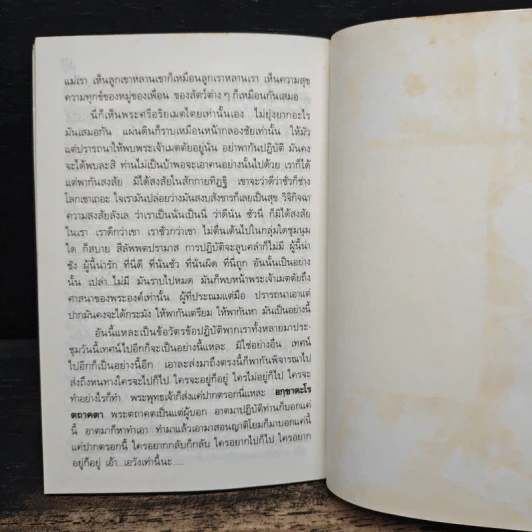 แม่เรา เห็นลูกเขาหลานเขาก็เหมือนลูกเราหลานเรา เห็นความสุข
ความทุกข์ของหมู่ของเพื่อน ของสัตว์ต่าง ๆ ก็เหมือนกันเสมอ
นี่ก็เห็นพระศรีอริยเมตไตยเท่านั้นเอง ไม่ยุ่งยากอะไร
มันเสมอกัน แผ่นดินก็ราบเหมือนหน้ากลองชัยเท่านั้น ให้มัว
แต่ปรารถนาให้พบพระเจ้าเมตตัยอยู่นั่น อย่าพากันปฏิบัติ มันคง
จะได้พบละสิ ท่านไม่เป็นบ้าพอจะเอาคนอย่างนั้นไปด้วย เราก็ได้
แต่พากันสงสัย มิได้สงสัยในสักกายทิฏฐิ เขาจะว่าดีว่าชั่วก็ช่าง
โลกเขาเถอะ ใจเรามันปล่อยวางมันสงบสังขารก็เลยเป็นสุข วิจิกิจฉา
ความสงสัยลังเล ว่าเราเป็นนั่นเป็นนี่ ว่าดีนั่น ชั่วนี่ ก็มิได้สงสัย
ในเรา เราดีกว่าเขา เราชั่วกว่าเขา ไม่ตื่นเต้นไปในกลุ่มใดชุมนุม
ใด ก็สบาย สีลัพพตปรามาส การปฏิบัติจะลูบคลำก็ไม่มี ผู้นี้น่า
ชัง ผู้นี้น่ารัก ที่นี่ดี ที่นั่นชั่ว ที่นั่นผิด ที่นี่ถูก อันนั้นเป็นอย่าง
นั้น เปล่า..ไม่มี มันราบไปหมด มันก็พบหน้าพระเจ้าเมตตัยถึง
ศาสนาของพระองค์เท่านั้น ผู้ที่ประณมแต่มือ ปรารถนาเอาแต่
ปากมันคงจะได้กระมัง ให้พากันเตรียม ให้พากันหา มันเป็นอย่างนี้
อันนี้แหละเป็นข้อวัตรข้อปฏิบัติพาเราทั้งหลายมาประ-
ชุมวันนี้เทศน์ไปอีกก็จะเป็นอย่างนี้แหละ มิใช่อย่างอื่น เทศน์
ไปอีกก็เป็นอย่างนี้อีก เอาละส่งมาถึงตรงนี้ก็พากันพิจารณาไป
ส่งถึงหนทางใครจะไปก็ไป ใครจะอยู่ก็อยู่ ใครไม่อยู่ก็ไป ใครจะ
ทำอย่างไรก็ทำ พระพุทธเจ้าก็ส่งแค่ปากตรอกนี้แหละ อกฺขาตะโร
ตถาคตา พระตถาคตเป็นแต่ผู้บอก อาตมาปฏิบัติท่านก็บอกแค่
นี้ อาตมาก็หาทำเอา ทำมาแล้วเอามาสอนญาติโยมก็มาบอกแค่นี้
แค่ปากตรอกนี้ ใครอยากกลับก็กลับ ใครอยากไปก็ไป ใครอยาก
อยู่ก็อยู่ เอ้า...เอวังเท่านี้นะ.....